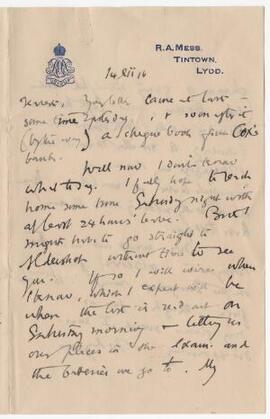 R.A. MESS.
TINTOWN,
LYDD.
14 XII 16
Dearest, Your letter came at last –
some time yesterday, & soon after it
(by the way) a cheque book from Cox's
bank.
Well now I don't know
what to say. I fully hope to reach
home some time Saturday night with
at least 24 hours' leave. But I
might have to go straight to
Aldershot without time to see
you. If so I will wire when
I know, which I expect will be
when the list is read out on
Saturday morning – telling us
our places in the Exam. and
the batteries we go to. My